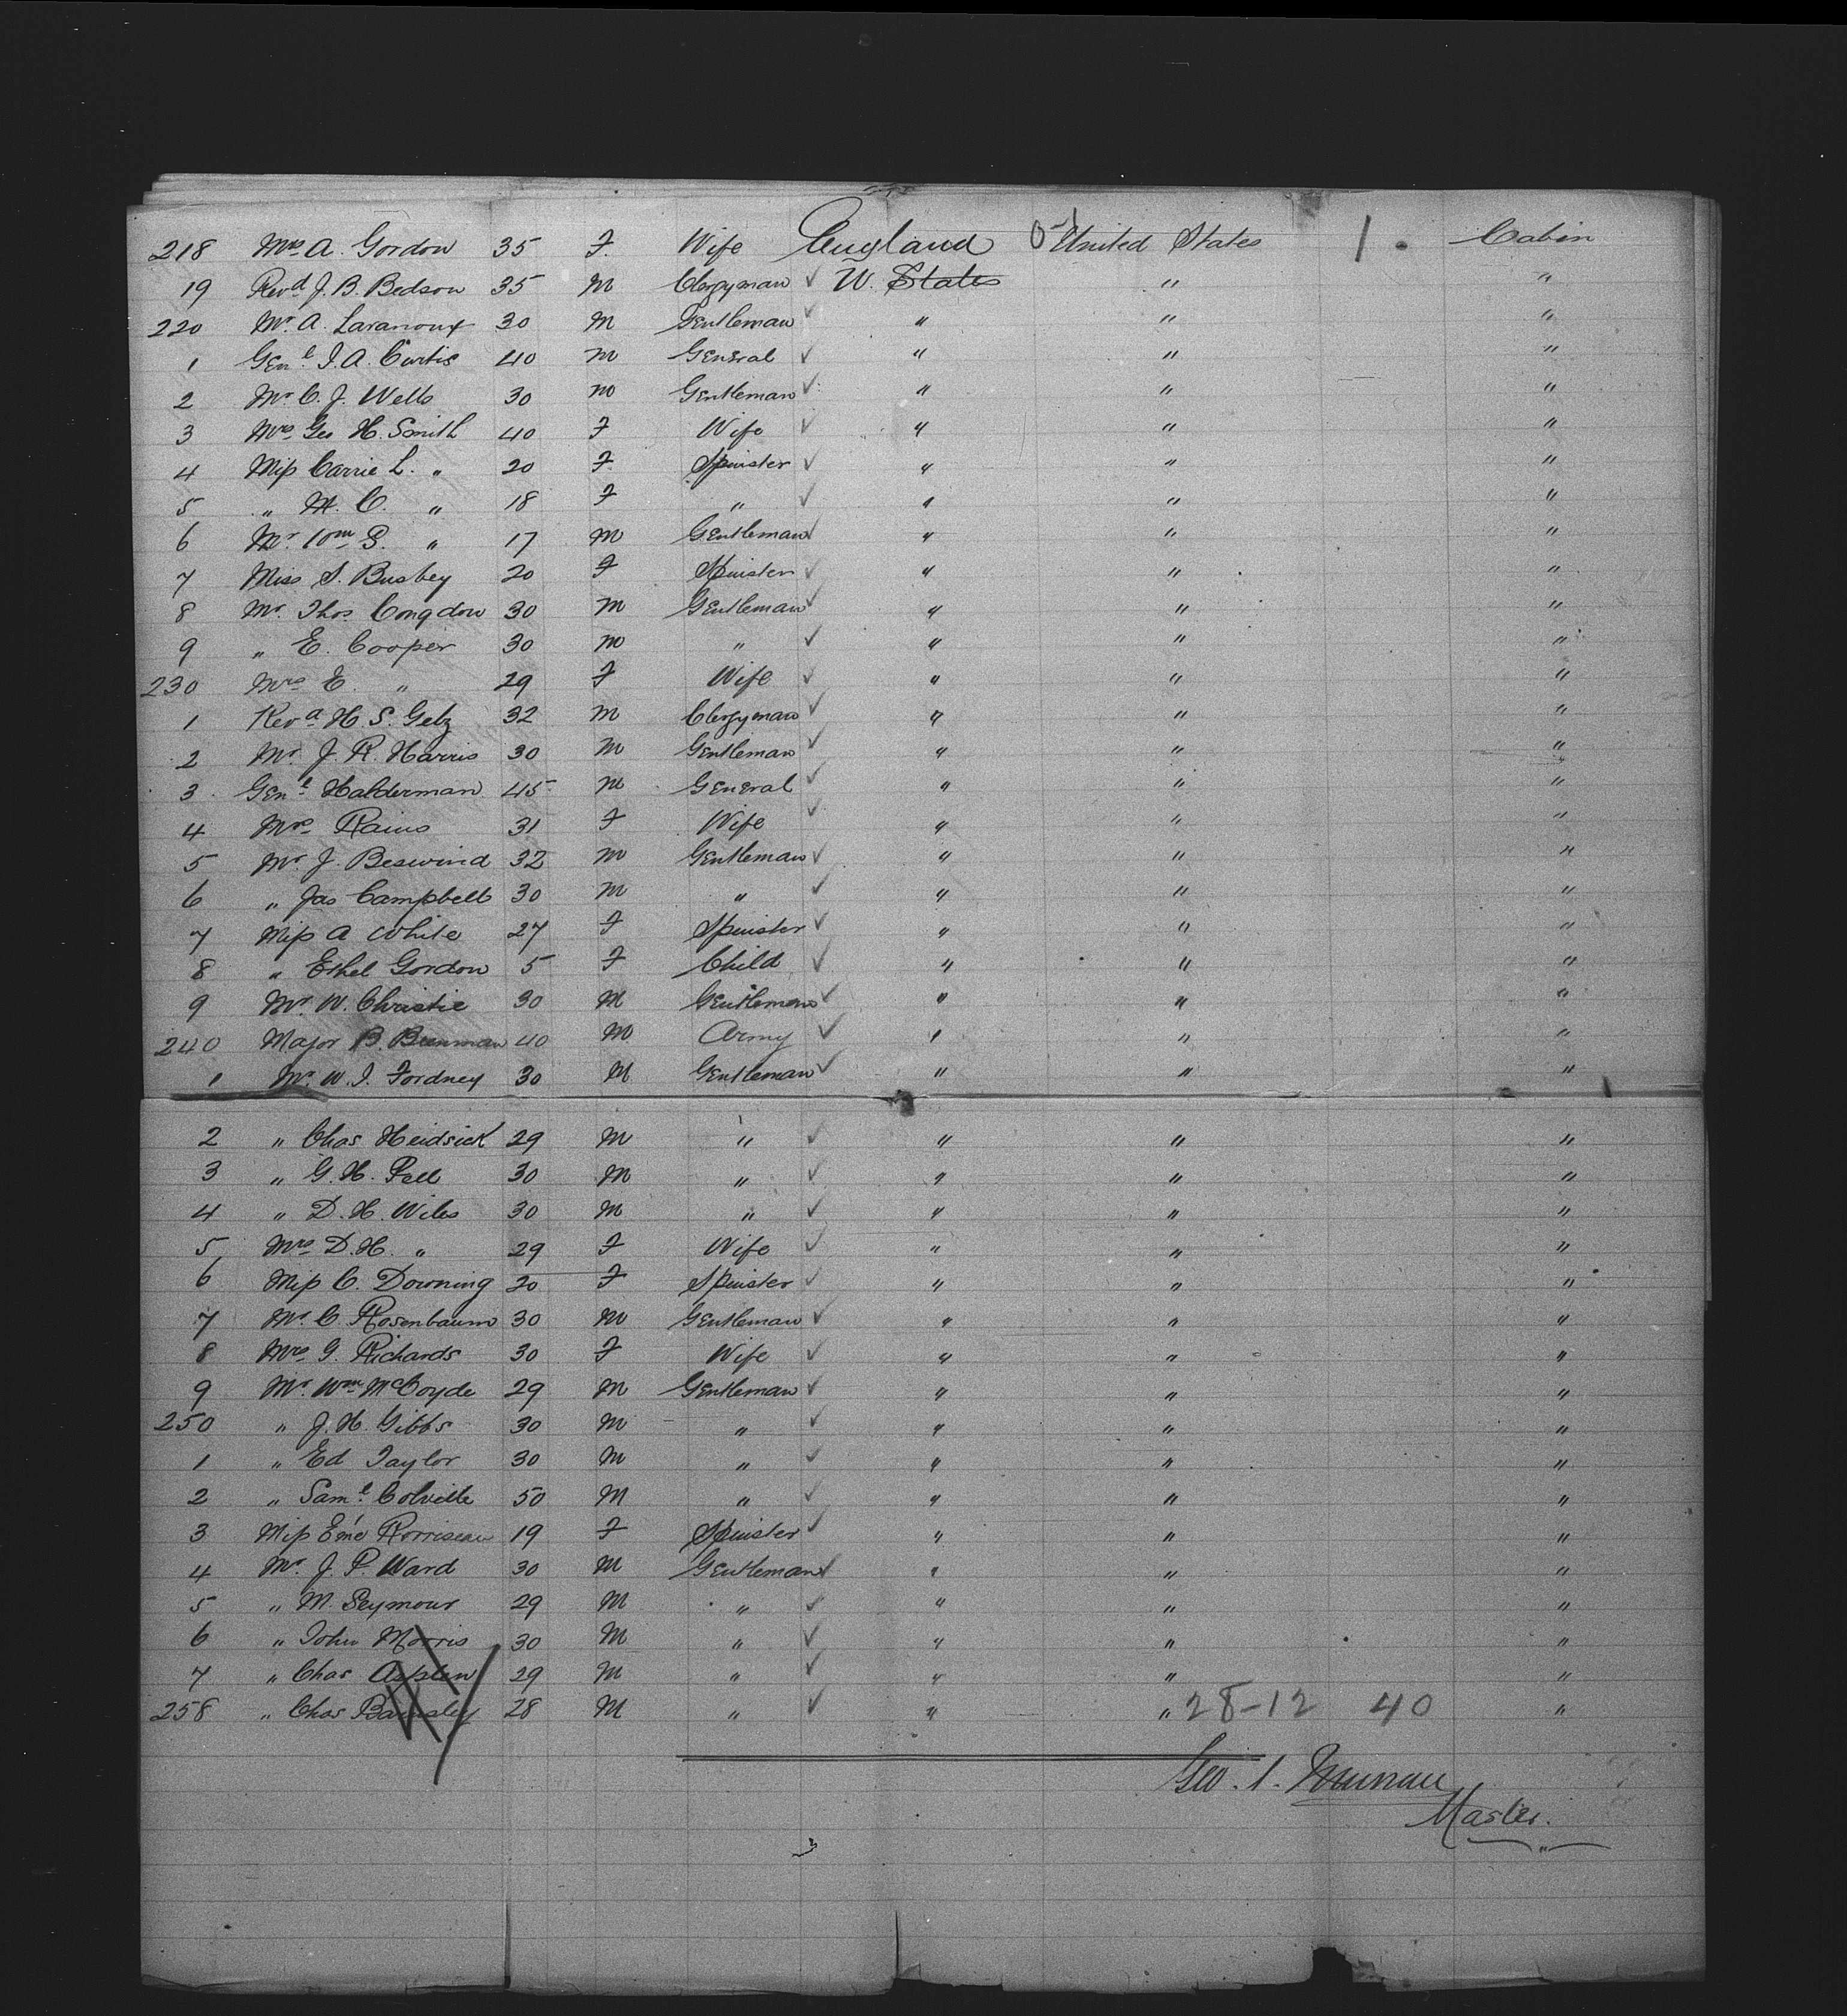 218 Mrs A. Gordon 35 F. Wife England United States 1. Cabin
19 Revd J. B. Bedson 35 M Clergyman ✓ U. States " "
220 Mr A. Laranoux 30 M Gentleman ✓ " " "
1 Genl J. A. Curtis 40 M General ✓ " " "
2 Mr C. J. Wells 30 M Gentleman ✓ " " "
3 Mrs Geo H. Smith 40 F Wife ✓ " " "
4 Miss Carrie L. " 20 F. Spinster ✓ " " "
5 " M. C. " 18 F " ✓ " " "
6 Mr Wm S. " 17 M Gentleman ✓ " " "
7 Miss S. Busbey 20 F Spinster ✓ " " "
8 Mr. Thos Congdon 30 M Gentleman ✓ " " "
9 " E. Cooper 30 M " ✓ " " "
230 Mrs E. " 29 F Wife ✓ " " "
1 Revd H. S. Getz 32 M Clergyman ✓ " " "
2 Mr J. R. Harris 30 M Gentleman ✓ " " "
3 Genl Halderman 45 M General ✓ " " "
4 Mrs Rains 31 F Wife ✓ " " "
5 Mr J. Beswind 32 M Gentleman ✓ " " "
6 " Jas Campbell 30 M " ✓ " " "
7 Miss A White 27 F Spinster ✓ " " "
8 " Ethel Gordon 5 F Child ✓ " " "
9 Mr W. Christie 30 M Gentleman ✓ " " "
240 Major B. 40 M Army ✓ " " "
1 Mr W. J. Fordney 30 M Gentleman ✓ " " "
2 " Chas Heidsick 29 M " ✓ " " "
3 " G. H. Pell 30 M " ✓ " " "
4 " D. H. Wiles 30 M " ✓ " " "
5 Mrs D. H. " 29 F Wife ✓ " " "
6 Miss C. Downing 20 F Spinster ✓ " " "
7 Mr C. Rosenbaum 30 M Gentleman ✓ " " "
8 Mrs G. Richards 30 F Wife ✓ " " "
9 Mr Wm McCoyde 29 M Gentleman ✓ " " "
250 " J. H. Gibbs 30 M " ✓ " " "
1 " Ed Taylor 30 M " ✓ " " "
2 " Saml Colville 50 M " ✓ " " "
3 Miss 19 F Spinster ✓ " " "
4 Mr. J. P. Ward 30 M Gentleman ✓ " " "
5 " M. Seymour 29 M " ✓ " " "
6 " John Morris 30 M " ✓ " " "
7 " Chas 29 M " ✓ " " "
258 " Chas 28 M " ✓ " " 28-12 40 "
Geo.
Master.